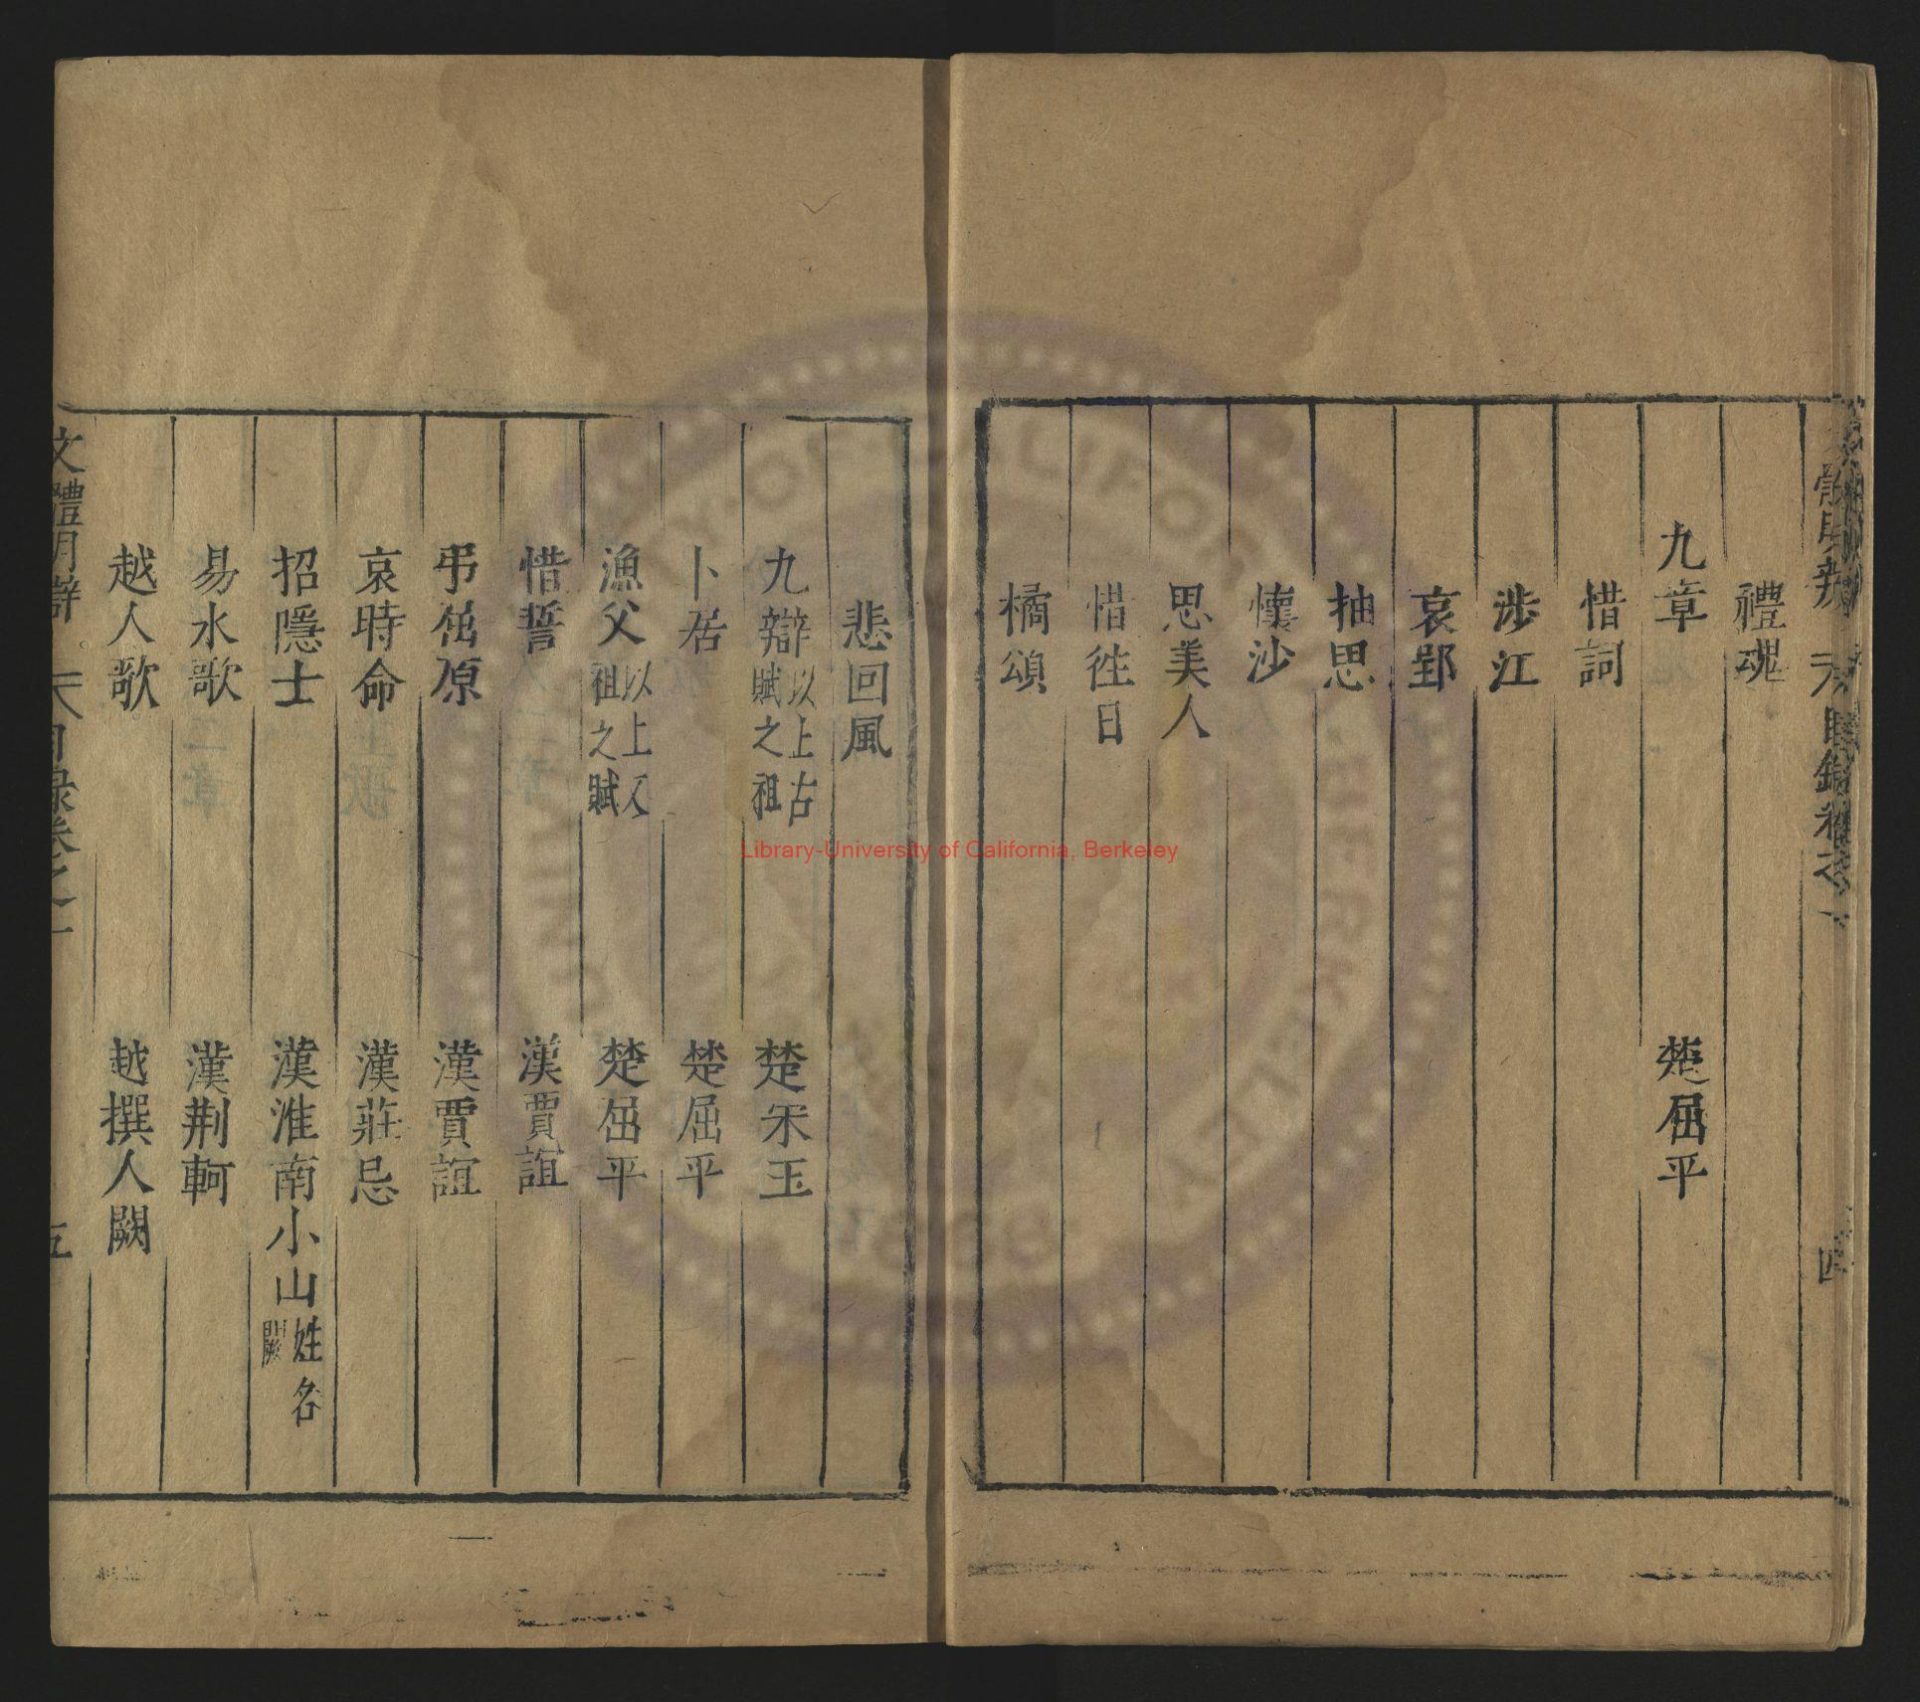 禮魂
九章 楚屈平
惜詞
涉江
哀郢
抽思
懷沙
思美人
惜徃日
橘頌
悲回風
九辯 以上古賦之祖 楚宋玉
卜居 楚屈平
漁父 以上文祖之賦 楚屈平
惜誓 漢賈誼
弔屈原 漢賈誼
哀時命 漢莊忌
招隱士 漢淮南小山 姓名闕
易水歌 漢荆軻
越人歌 越撰人闕
文體明辯 目錄卷之一 五
Library-University of California, Berkeley